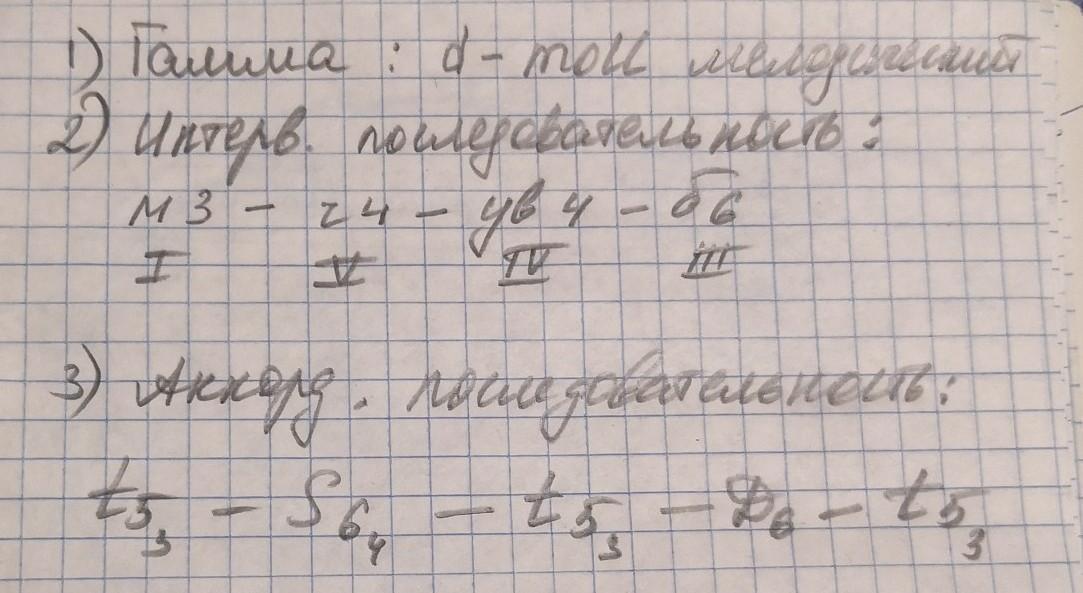 1) Гамма : d - moll мелодический
2) Интерв. последовательность:
м 3 - ч 4 - ув 4 - б 6
I V IV III
3) Аккорд. последовательность:
t5 3 - S6 4 - t5 3 - D6 - t5 3